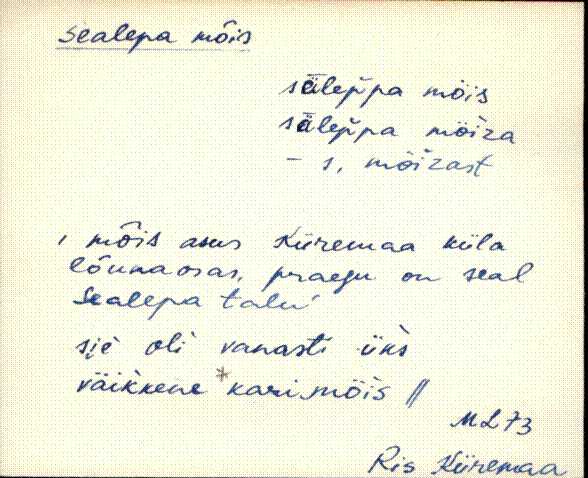 Sealepa mõis
sälep̆pa möis
sälep̆pa möiza
- s, möizast
, mõis asus Kiiremaa küla
lõunaosas, praegu on seal
Sealepa talu
sie oli vanasti üks
väikkene *kari möis //
ML73
Ris Kiiremaa